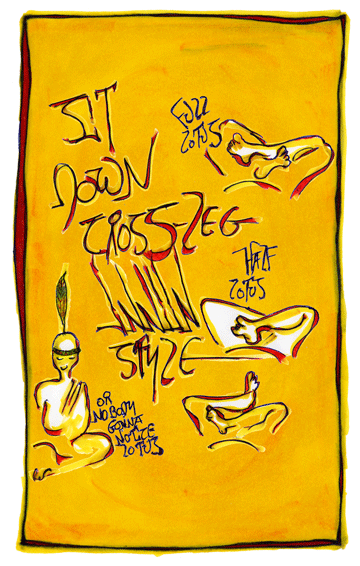 SIT
DOWN
CROSS-LEG
INNIN
STYLE
FULL
LOTUS
HALF
LOTUS
OR
NOBODY
GONNA
NOTICE
LOTUS